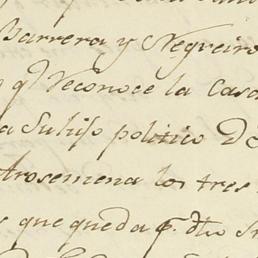 Barrera y Negreiro
q.e reconoce la Casa
a Subiso politico D
trosemena los tres
que queda p. dho S